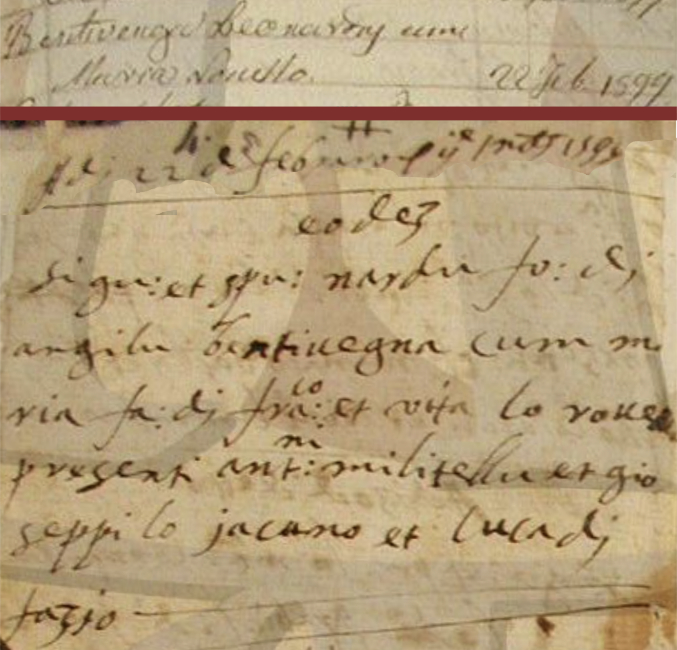 Bentivenga Leonardus cum
Maria Lovetto. 22 Feb. 1599
Adi 22 di febraro 1599
eodez
Si gu: et spu: nardu fo: di
angilu bentivegna cum m
ria fa: di fra:co et vita lo rove
presenti ant:ni militellu et gio
seppi lo jacano et luca di
fazio